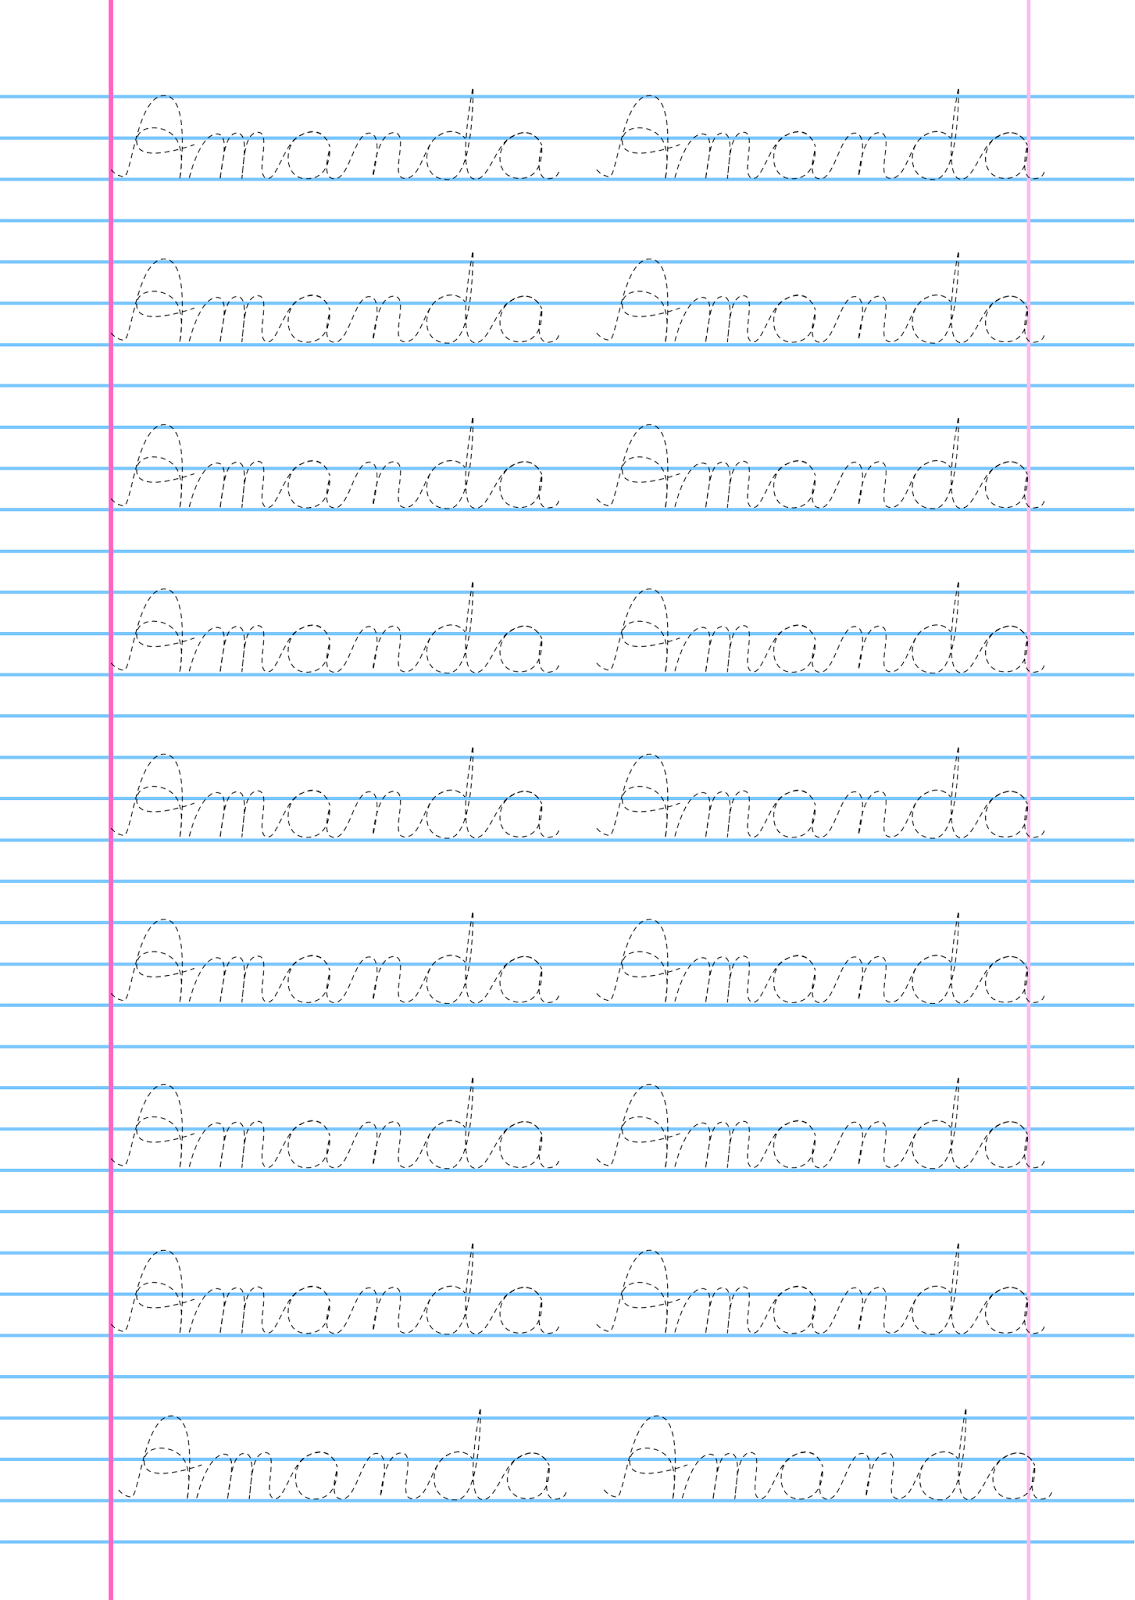 Amanda Amanda
Amanda Amanda
Amanda Amanda
Amanda Amanda
Amanda Amanda
Amanda Amanda
Amanda Amanda
Amanda Amanda
Amanda Amanda